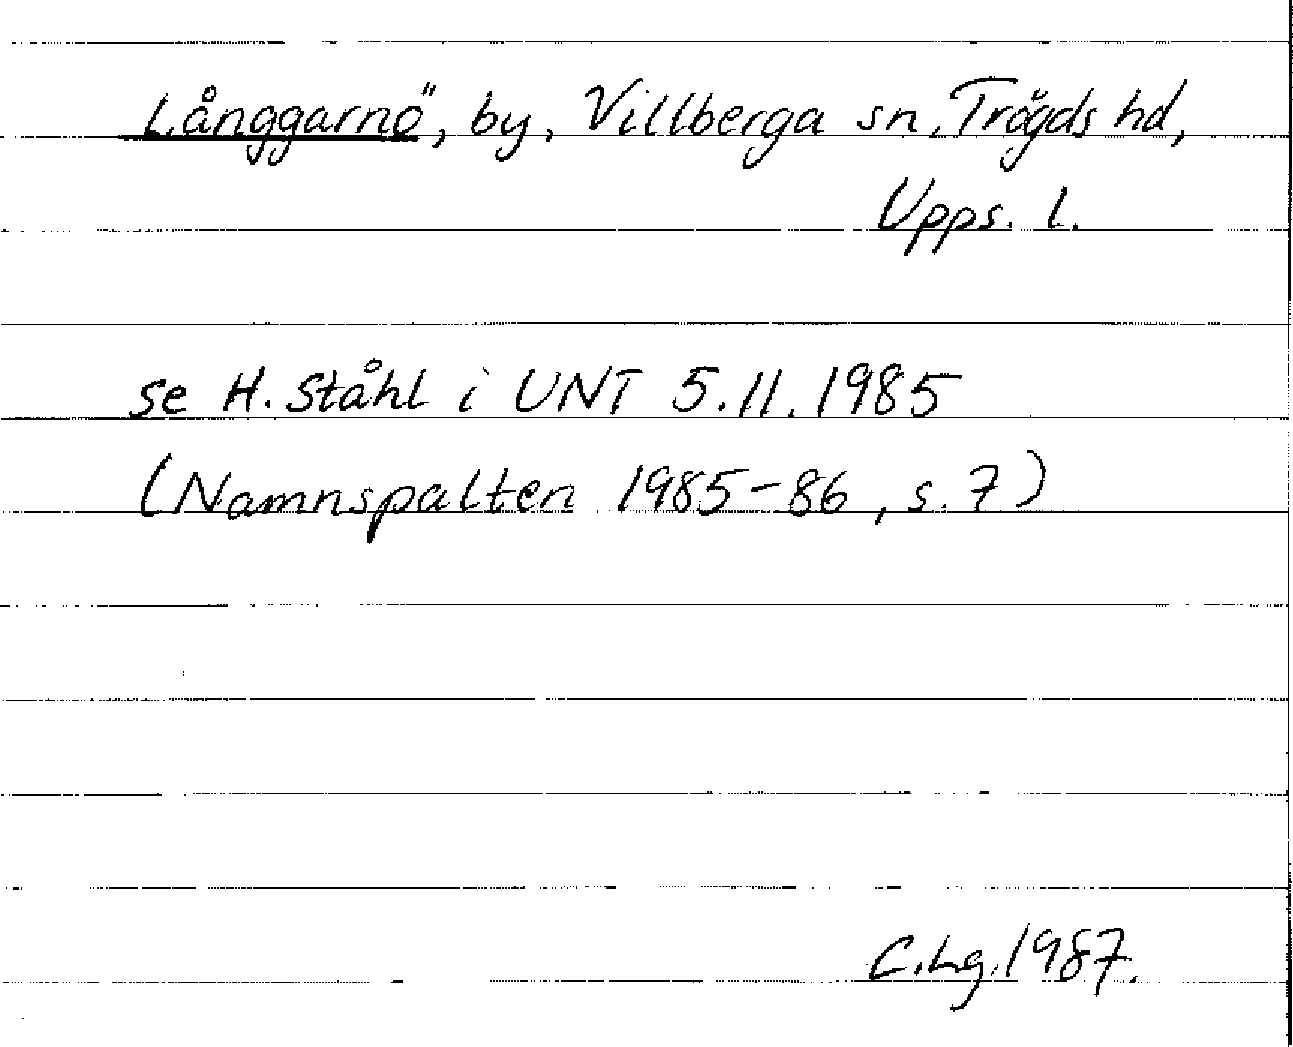 Långgarnö, by, Villberga sn, Trögds hd,
Upps. l.
se H. Ståhl i UNT 5.11.1985
(Namnspalten 1985-86, s. 7)
C.Lg.1987.